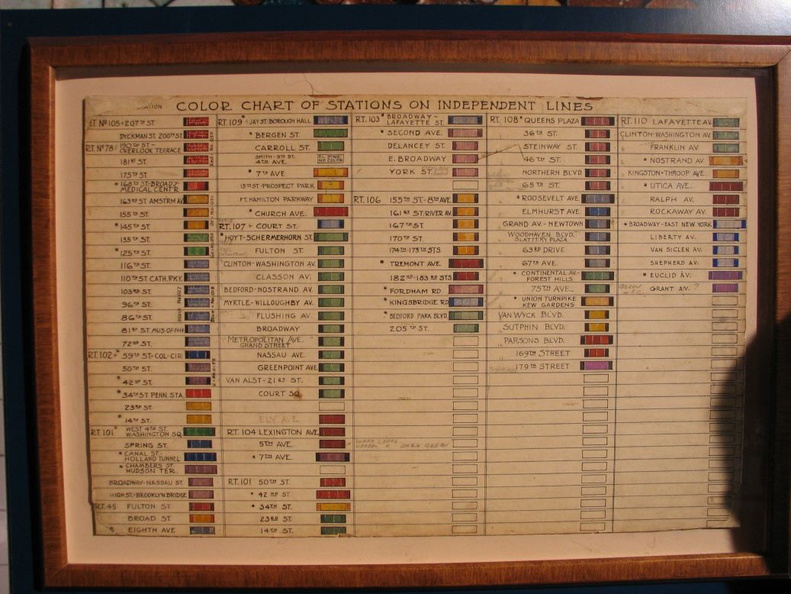 COLOR CHART OF STATIONS ON INDEPENDENT LINES
RT. Nº 105 * 207TH ST.
DYCKMAN ST. 200TH ST.
RT. Nº 78 190TH ST.-
OVERLOOK TERRACE
181ST ST.
175TH ST.
* 168TH ST-BROADY
MEDICAL CENTR
163RD ST. AMSTRM AV.
155TH ST.
* 145TH ST.
135TH ST.
* 125TH ST.
116TH ST.
110TH ST CATH. PKY.
103RD ST.
96TH ST.
86TH ST.
81ST ST.
72ND ST.
RT. 102 * 59TH ST-COL-CIR
50TH ST.
* 42ND ST.
* 34TH ST PENN STA.
23RD ST.
* 14TH ST.
RT. 101 * WEST 4TH ST.
WASHINGTON SQ.
SPRING ST.
* CANAL ST.
HOLLAND TUNNEL
* CHAMBERS ST.
HUDSON TER.
BROADWAY-NASSAU ST.
HIGH ST-BROOKLYN BRIDGE
RT. 45 FULTON ST.
BROAD ST
* EIGHTH AVE
RT. 109 * JAY ST BOROUGH HALL
* BERGEN ST.
CARROLL ST.
SMITH-9TH ST.
4TH AVE.
* 7TH AVE
15TH ST-PROSPECT PARK
FT. HAMILTON PARKWAY
* CHURCH AVE.
RT. 107 * COURT ST.
* HOYT-SCHERMERHORN ST.
FULTON ST.
CLINTON-WASHINGTON AV.
CLASSON AV.
BEDFORD-NOSTRAND AV.
MYRTLE-WILLOUGHBY AV.
FLUSHING AV.
BROADWAY
METROPOLITAN AVE.
GRAND STREET
NASSAU AVE.
GREENPOINT AVE
VAN ALST-21ST ST.
COURT SQ.
ELY AVE
RT. 104 LEXINGTON AVE.
5TH AVE.
* 7TH AVE.
RT. 101 50TH ST.
* 42ND ST.
* 34TH ST.
23RD ST.
14TH ST.
RT. 103 * BROADWAY-
LAFAYETTE ST.
* SECOND AVE.
DELANCEY ST.
E. BROADWAY
YORK ST.
RT. 106 155TH ST-8TH AVE
161ST ST-RIVER AV
167TH ST
170TH ST
174TH-175TH STS
* TREMONT AVE.
182ND-183RD STS
* FORDHAM RD
* KINGSBRIDGE RD
* BEDFORD PARK BLVD.
205TH ST.
RT. 108 * QUEENS PLAZA
36TH ST.
STEINWAY ST.
46TH ST.
NORTHERN BLVD
65TH ST.
* ROOSEVELT AVE
ELMHURST AV.
GRAND AV-NEWTOWN
WOODHAVEN BLVD.
SLATTERY PLAZA
63RD DRIVE
67TH AVE
* CONTINENTAL AV-
FOREST HILLS
75TH AVE
* UNION TURNPIKE
KEW GARDENS
VAN WYCK BLVD.
SUTPHIN BLVD.
PARSONS BLVD.
169TH STREET
179TH STREET
RT. 110 LAFAYETTE AV.
CLINTON-WASHINGTON AV
FRANKLIN AV
* NOSTRAND AV.
KINGSTON-THROOP AVE.
* UTICA AVE.
RALPH AV.
ROCKAWAY AV.
* BROADWAY-EAST NEW YORK
LIBERTY AV.
VAN SICLEN AV
SHEPHERD AV.
* EUCLID AV.
GRANT AV.